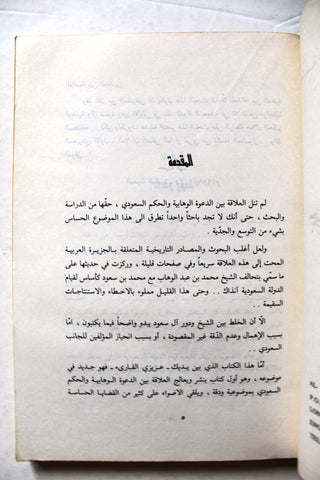 المقدمة
لم تنل العلاقة بين الدعوة الوهابية والحكم السعودي ، حقّها من الدراسة
والبحث ، حتى أنك لا تجد باحثاً واحداً تطرق الى هذا الموضوع الحساس
بشيء من التوسع والجدّية .
ولعل أغلب البحوث والمصادر التاريخية المتعلقة بالجزيرة العربية
المحت إلى هذه العلاقة سريعاً وفي صفحات قليلة ، وركزت في حديثها على
ما سمّي بتحالف الشيخ محمد بن عبد الوهاب مع محمد بن سعود كأساس لقيام
الدولة السعودية آنذاك .. وحتى هذا القليل مملوء بالاخطاء والاستنتاجات
السقيمة ..
الاّ أن الخلط بين الشيخ ودور آل سعود يبدو واضحاً فيما يكتبون ، امّا
بسبب الإهمال وعدم الدّقة غير المقصودة ، أو بسبب انحياز المؤلفين للجانب
السعودي ..
أمّا هذا الكتاب الذي بين يديك ـ عزيزي القارىء ـ فهو جديد في
موضوعه ، وهو أول كتاب ينشر ويعالج العلاقة بين الدعوة الوهابية والحكم
السعودي بموضوعية ودقة ، ويلقي الاضواء على كثير من القضايا الحساسة
٥